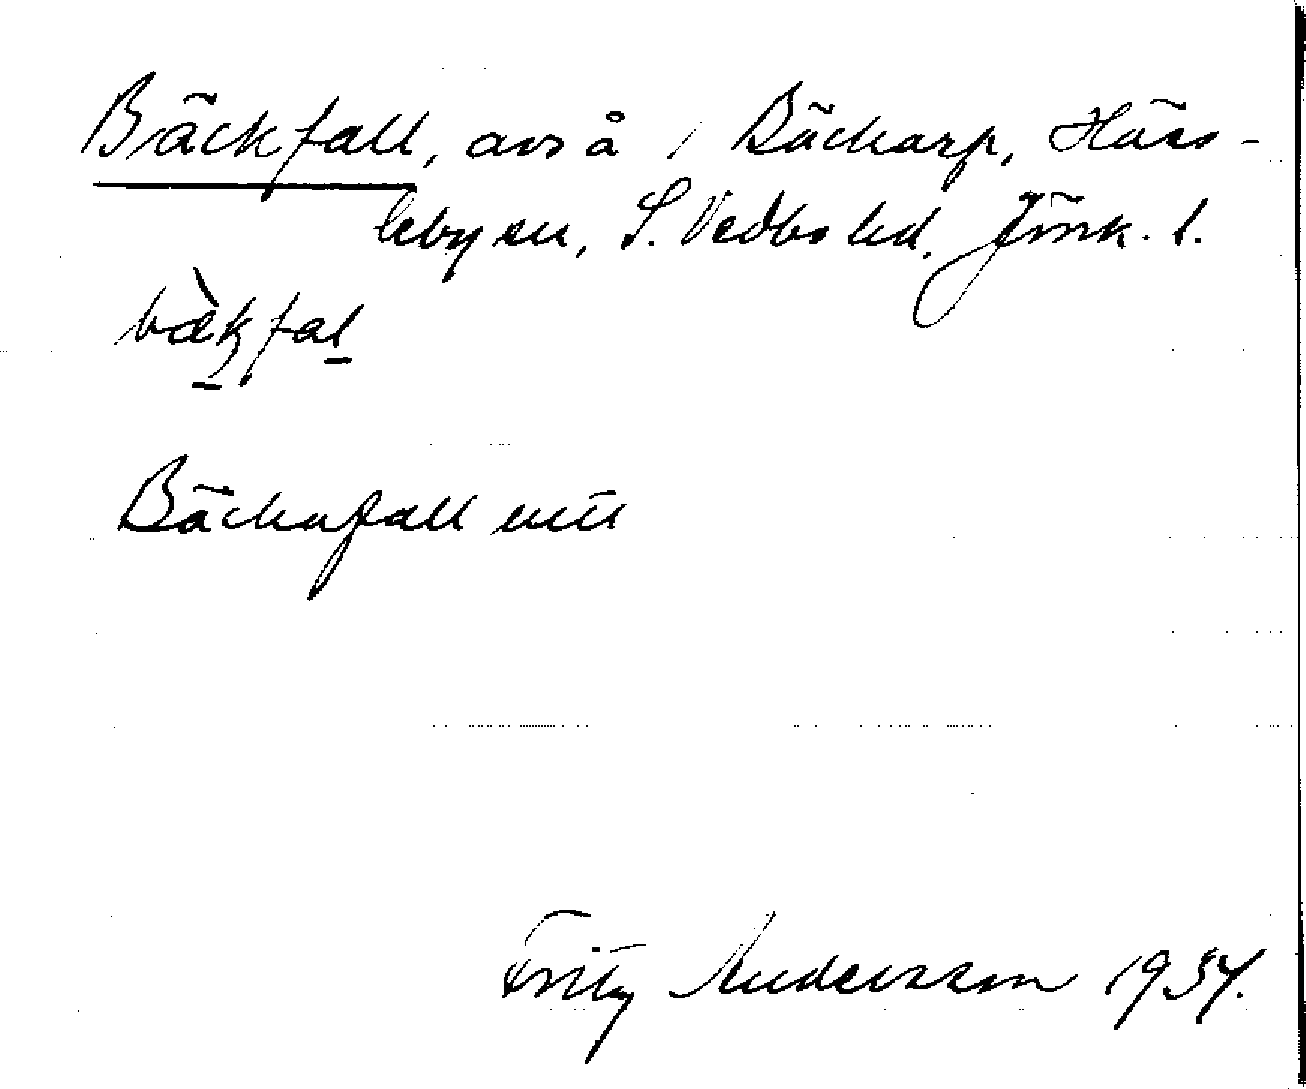 Bäckfall, avs å / Bäckarp, Häss-
lebyen, S. Vedbo hd. Jönk. l.
bækfal
Bäckafall
Fritz Andersson 1934.